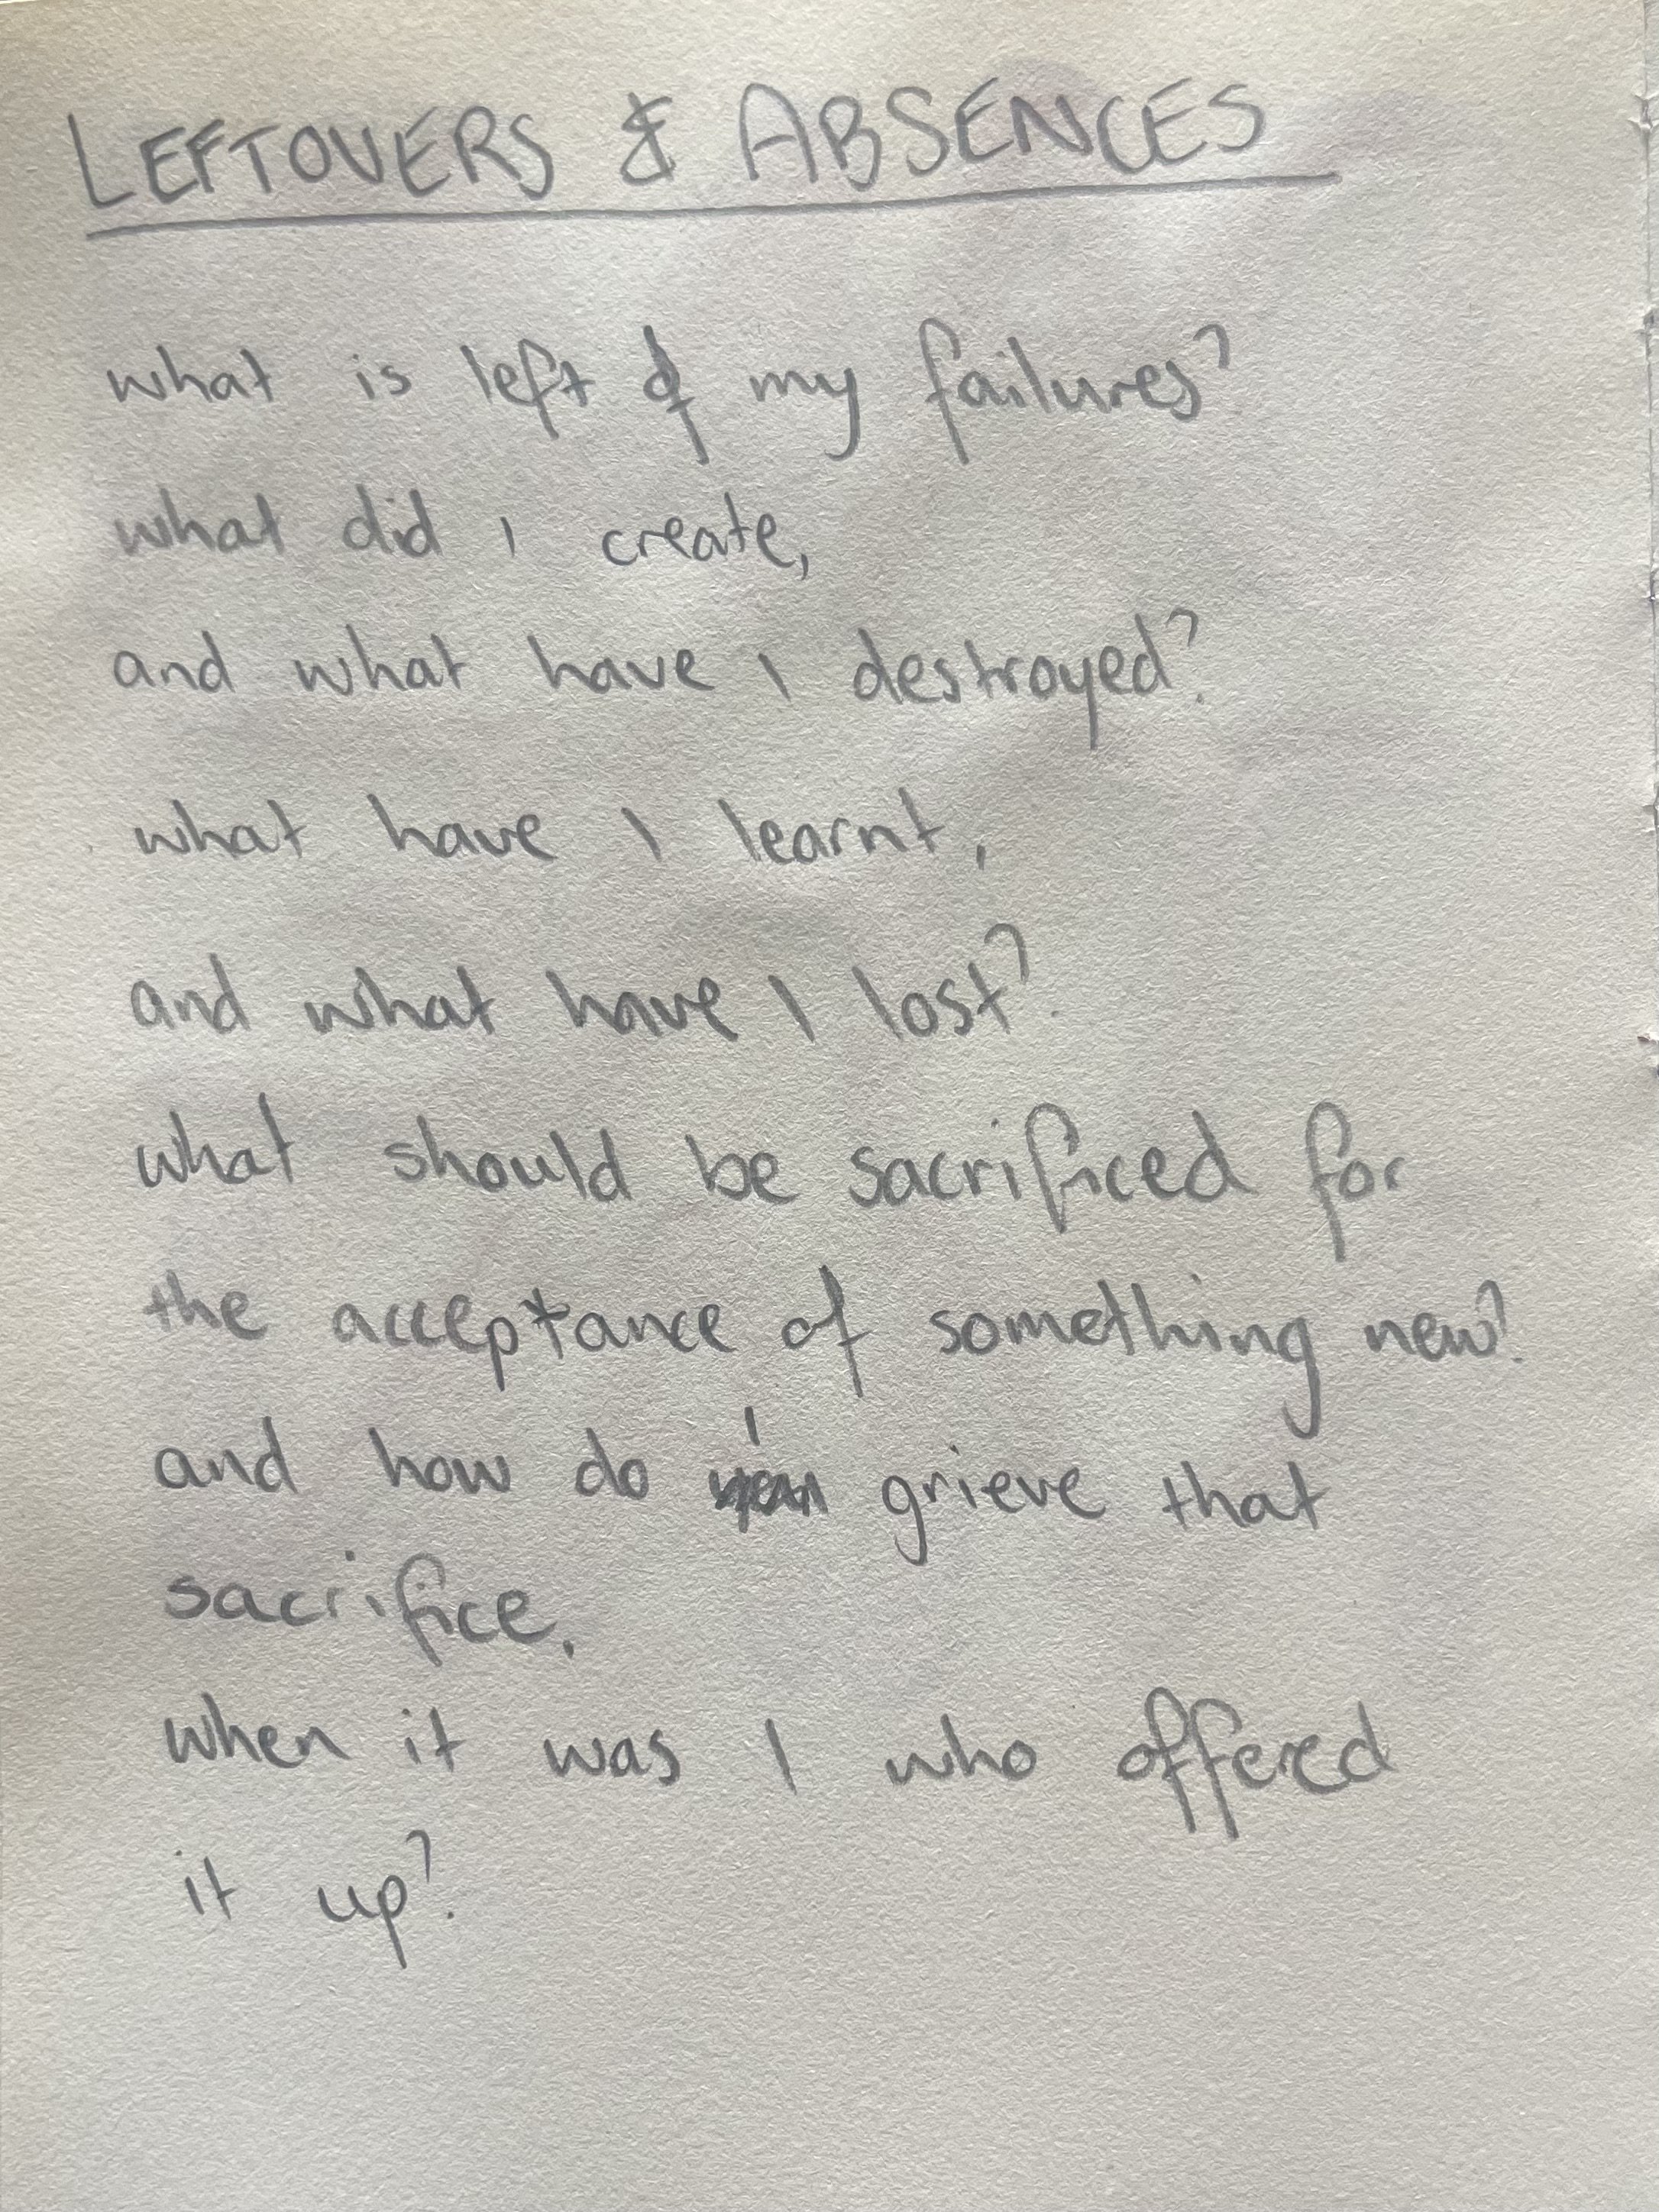 LEFTOVERS & ABSENCES
what is left of my failures?
what did I create,
and what have I destroyed?
what have I learnt,
and what have I lost?
what should be sacrificed for
the acceptance of something new?
and how do I grieve that
sacrifice,
when it was I who offered
it up?